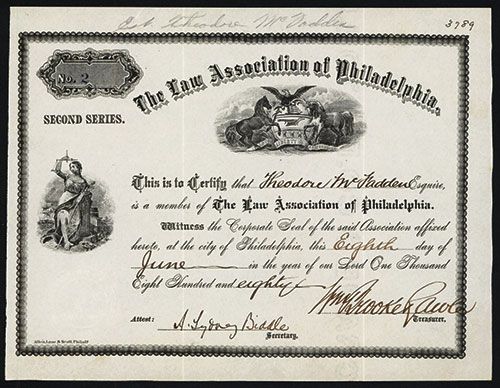 Est. Theodore McFadden
3789
No. 2
The Law Association of Philadelphia.
SECOND SERIES.
This is to Certify that Theodore McFadden Esquire,
is a member of The Law Association of Philadelphia.
Witness the Corporate Seal of the said Association affixed
hereto, at the city of Philadelphia, this Eighth day of
June in the year of our Lord One Thousand
Eight Hundred and eighty
Wm Brooke Rawle
Treasurer.
Attest: A. Sydney Biddle
Secretary.
Allen, Lane & Scott, Philad'a